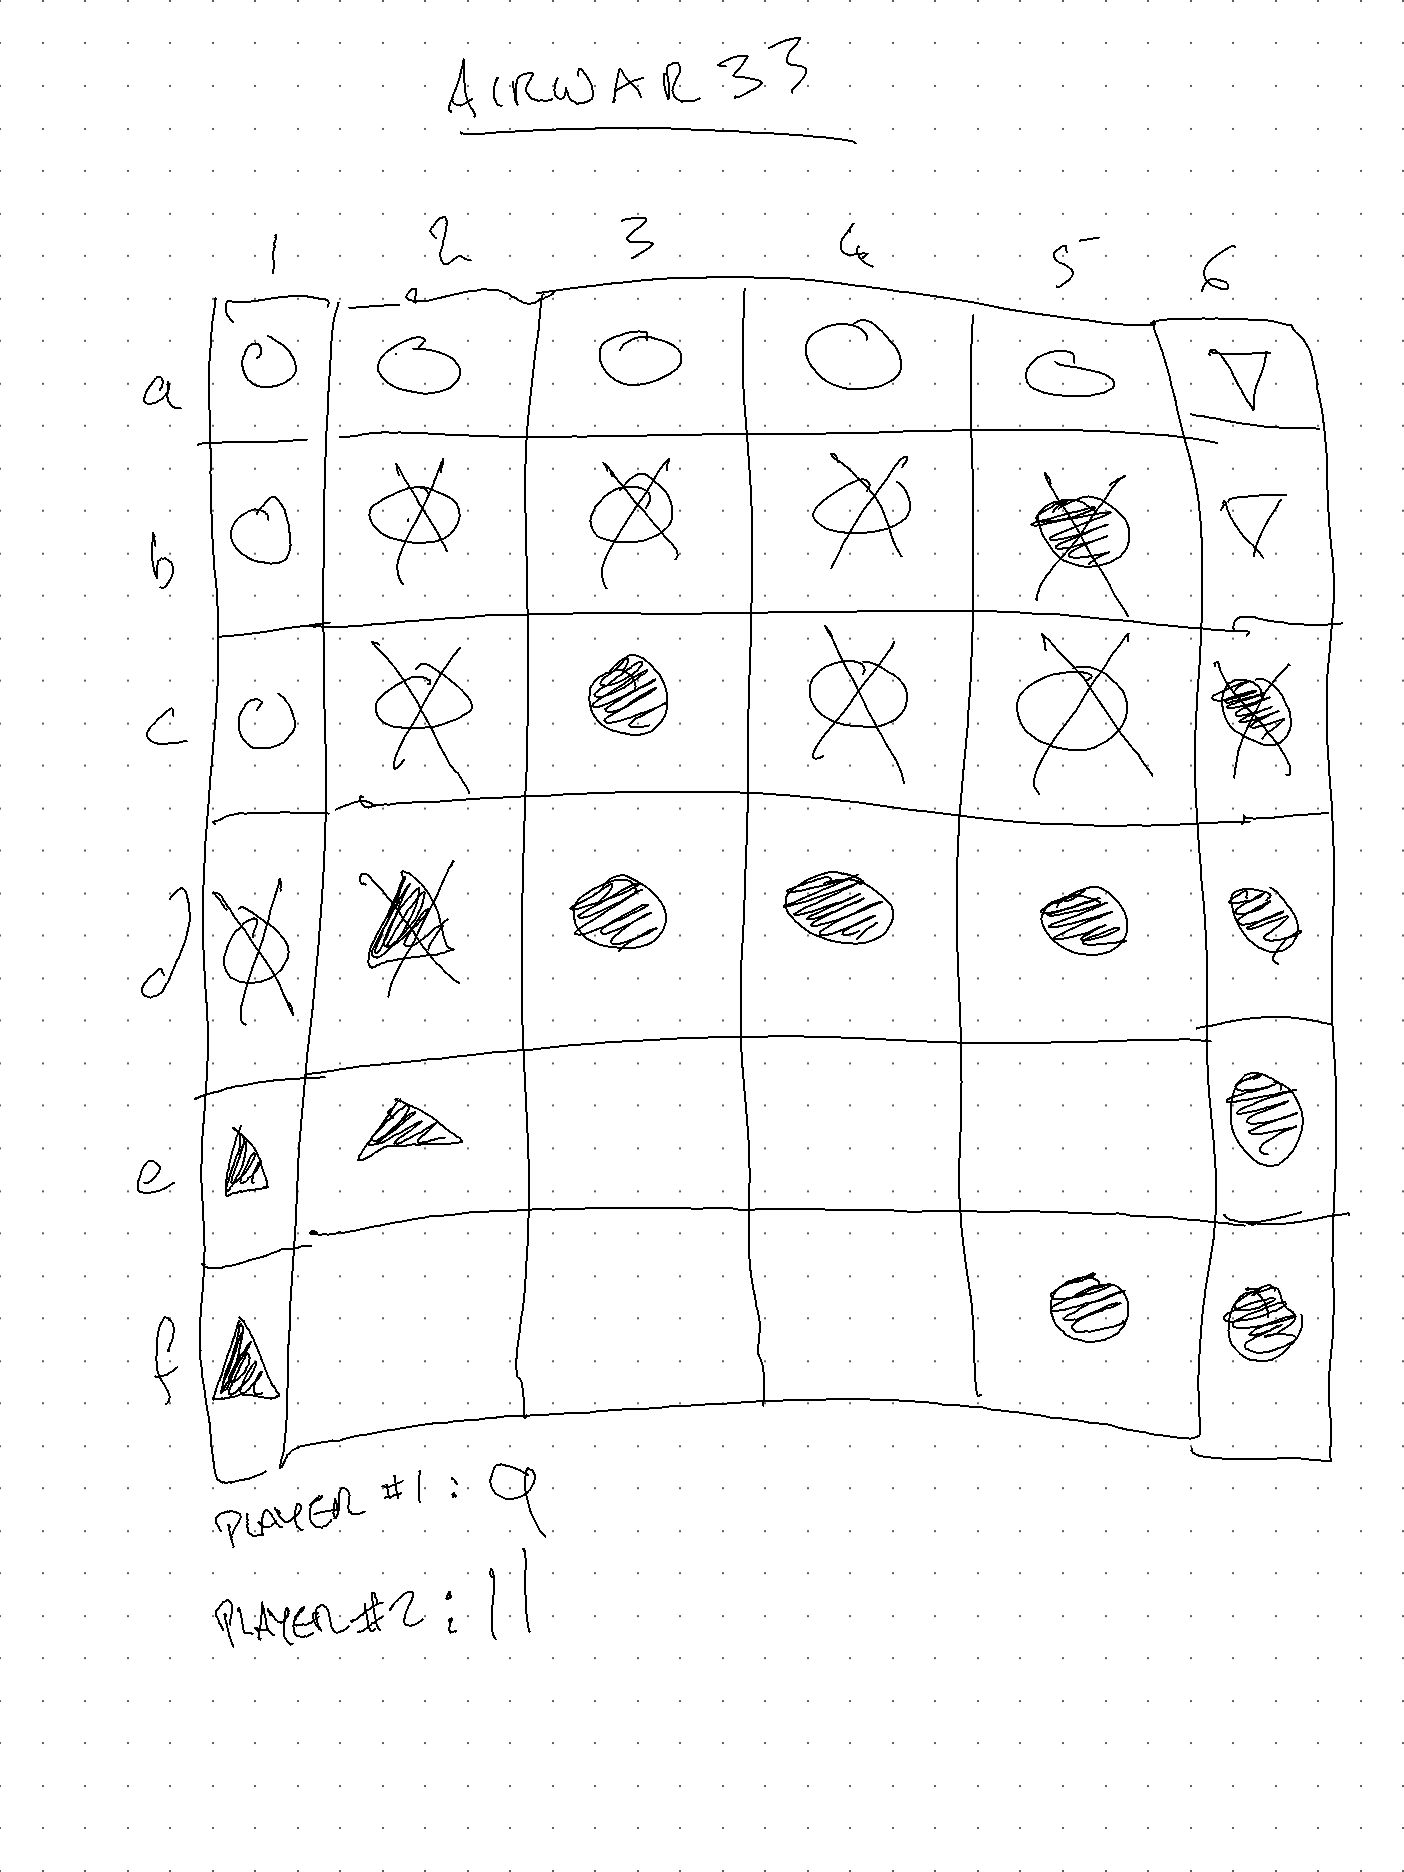 AIRWAR33
1 2 3 4 5 6
a
b
c
d
e
f
PLAYER #1: 9
PLAYER #2: 11